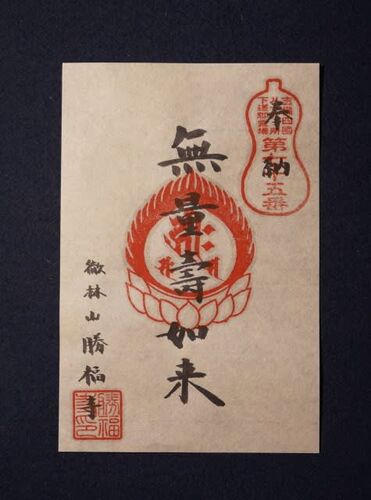 奉納
第
五番
無量壽如来
微林山勝福寺
勝福
寺印